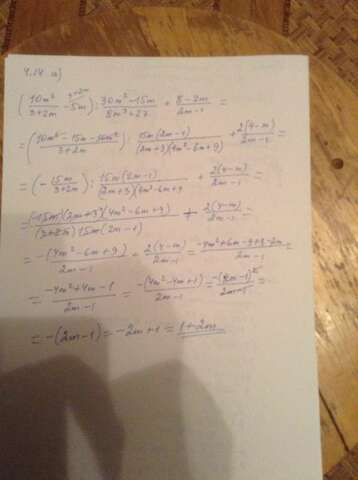 4.14 a)
(10m²/3+2m - 5m) : 30m²-15m/8m³+27 + 8-2m/2m-1 =
= (10m²-15m-10m²/3+2m) : 15m(2m-1)/(2m+3)(4m²-6m+9) + 2(4-m)/2m-1 =
= (-15m/3+2m) : 15m(2m-1)/(2m+3)(4m²-6m+9 + 2(4-m)/2m-1 =
= (-15m)(2m+3)(4m²-6m+9)/(3+2m)15m(2m-1) + 2(4-m)/2m-1 =
= -(4m²-6m+9)/2m-1 + 2(4-m)/2m-1 = -4m²+6m-9+8-2m/2m-1 =
= -4m²+4m-1/2m-1 = -(4m²-4m+1)/2m-1 = -(2m-1)²/2m-1 =
= -(2m-1) = -2m+1 = 1-2m